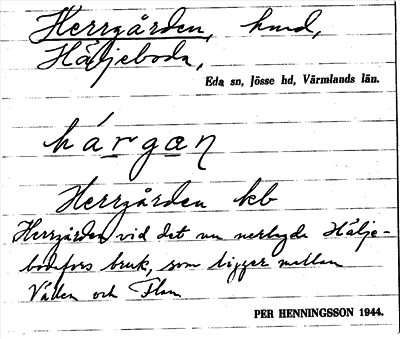 Herrgården, hmd,
Häljeboda,
Eda sn, Jösse hd, Värmlands län.
hárgæn
Herrgården kb
Herrgården vid det nu nerlagda Hälje-
bodafors bruk, som ligger mellan
Vållen och Flam
PER HENNINGSSON 1944.